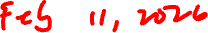 Feb 11, 2026